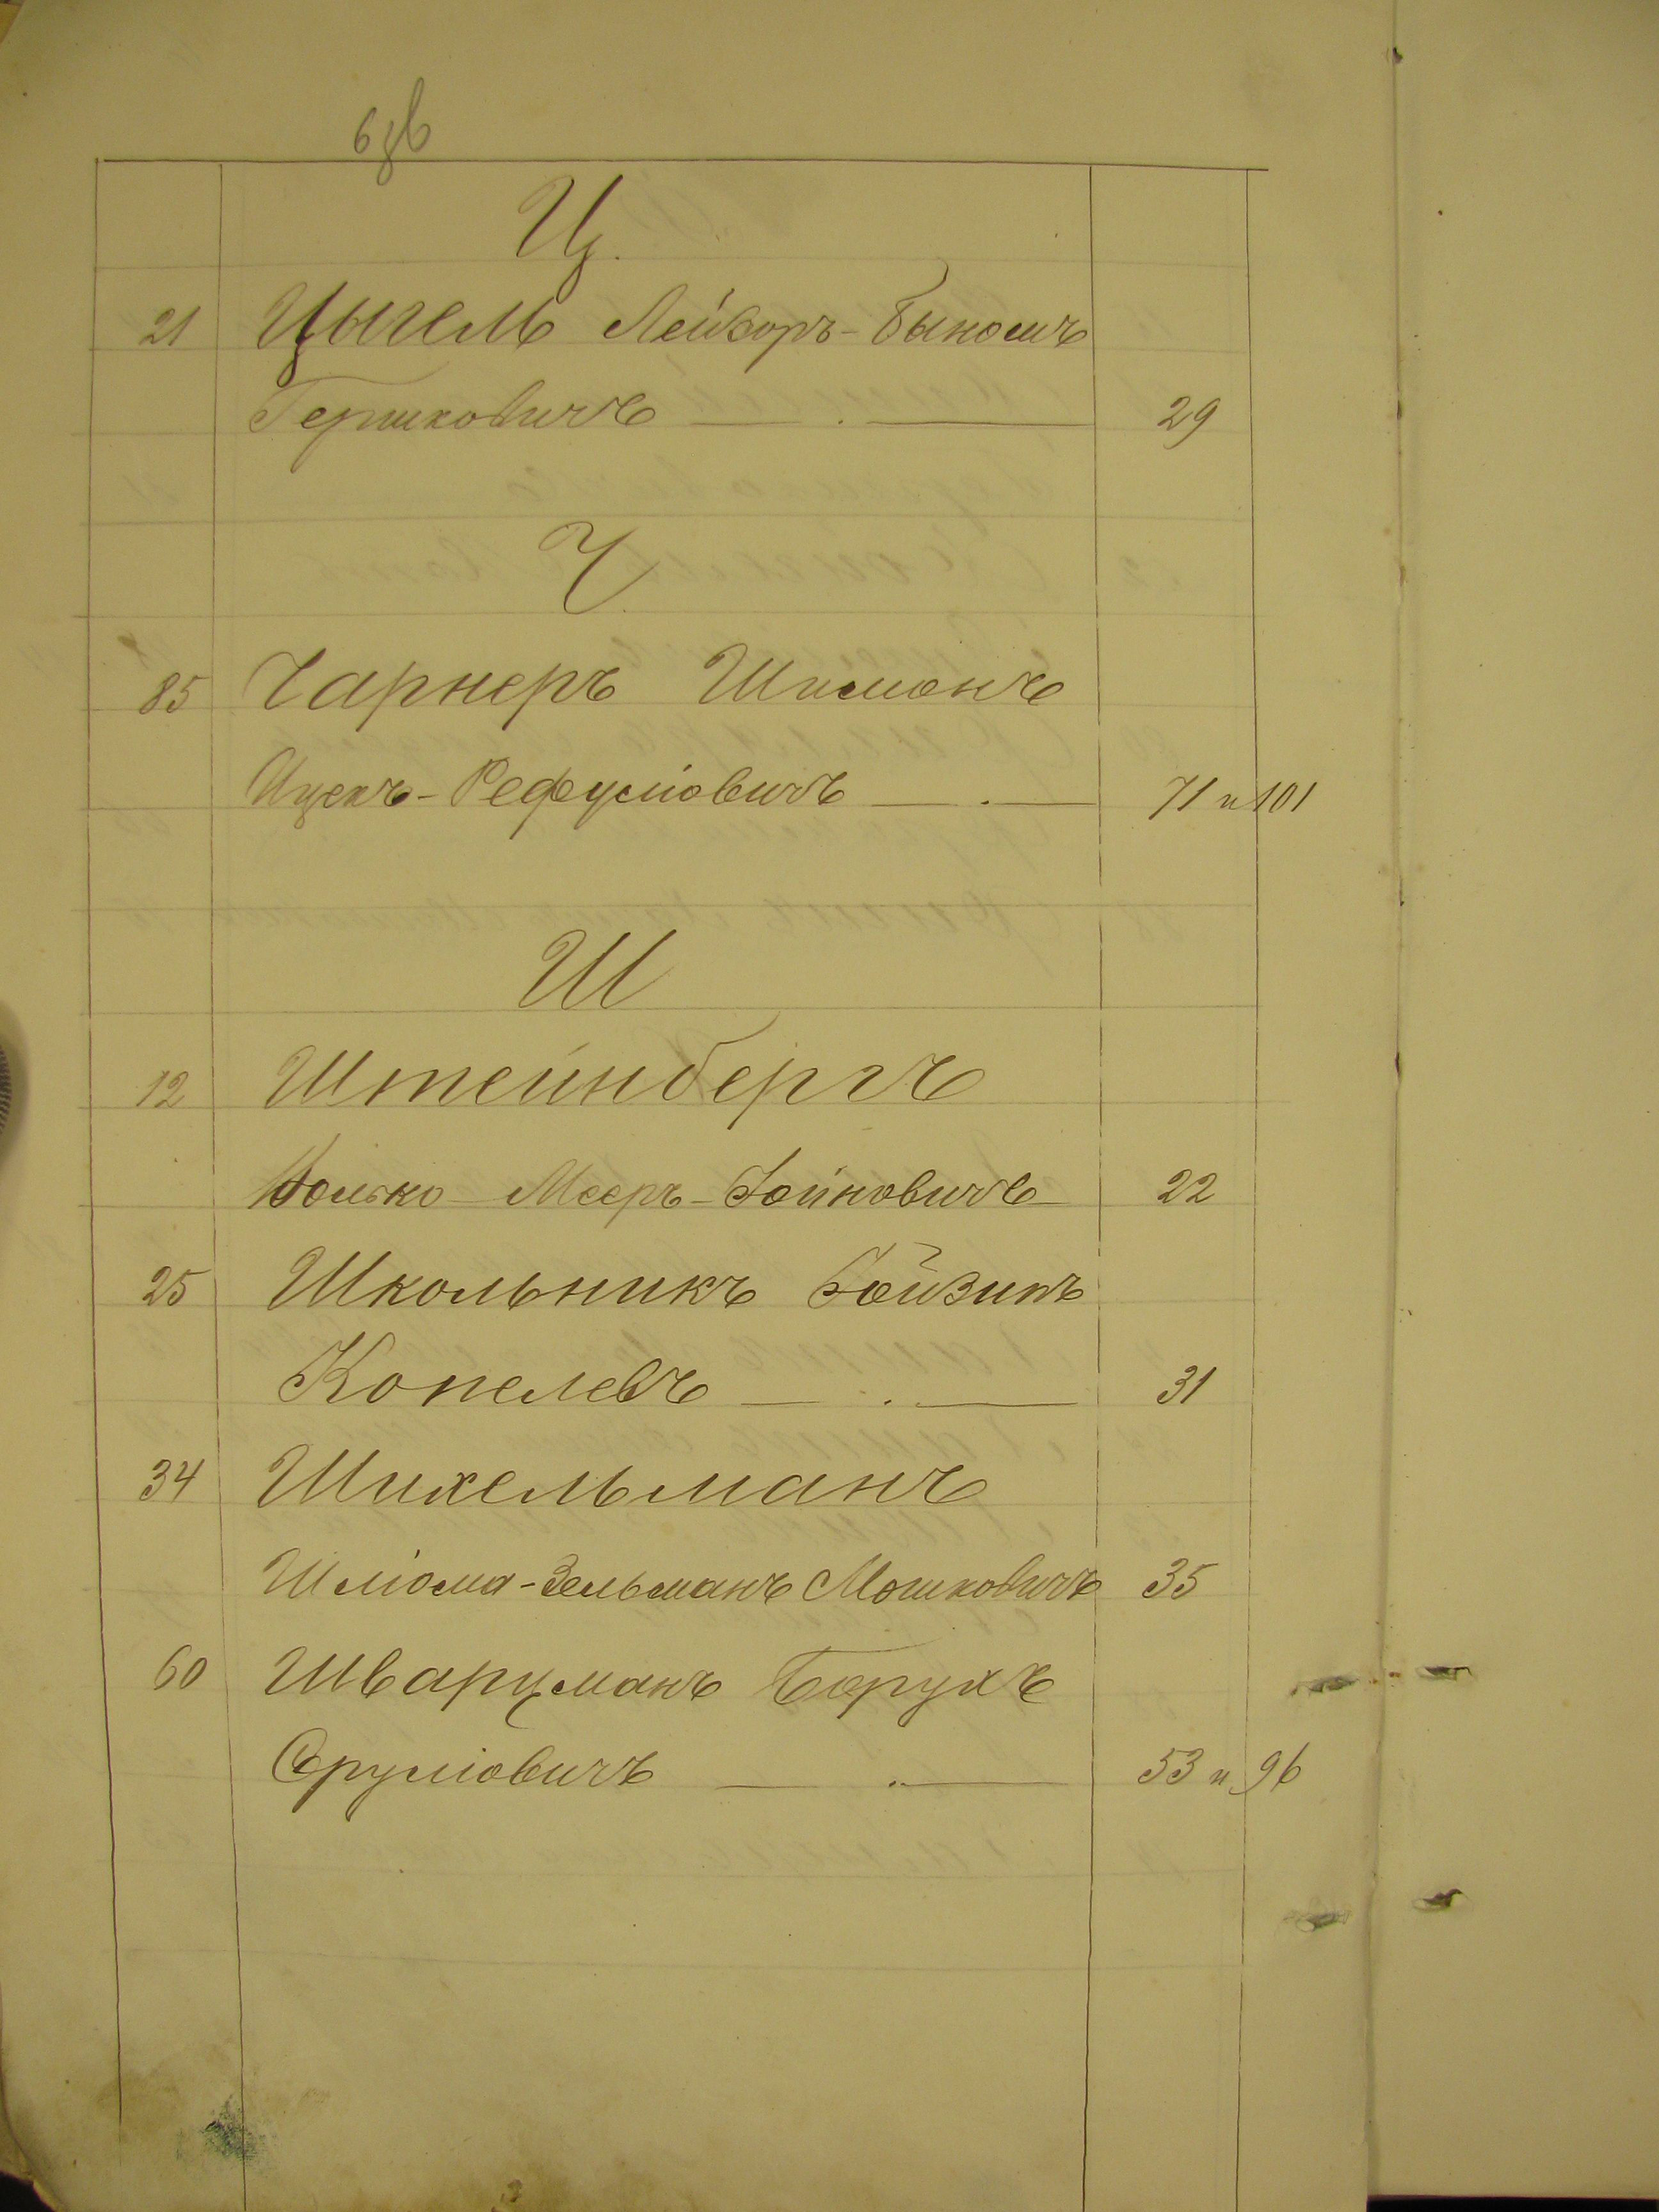 Ц.
21 Цыгель Лейзоръ-Быномъ
Гершковичъ 29
Ч
85 Чарнеръ Шимонъ
Ицекъ-Рефуліовичъ 71 и 101
Ш
12 Штейнбергъ
Волько Мееръ-Іойновичъ 22
25 Школьникъ Іойзипъ
Копелевъ 31
34 Шихельманъ
Шліома-Зельманъ Мошковичъ 35
60 Шварцманъ Борухъ
Сруліовичъ 53 и 96